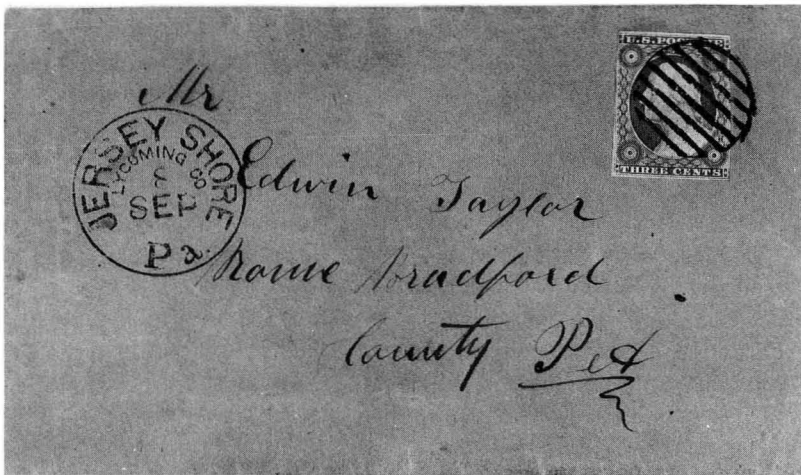 U.S. POSTAGE
THREE CENTS
JERSEY SHORE
LYCOMING CO
8
SEP
Pa.
Mr
Edwin Taylor
Rome Bradford
County Pa